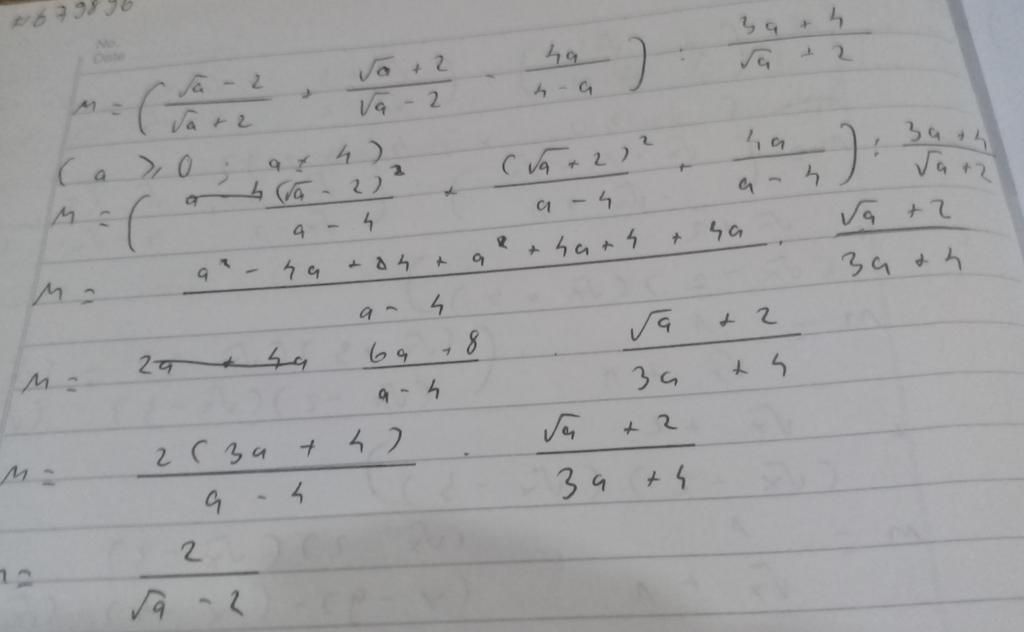 N679896
No.
Date
M = ( (√a - 2)/(√a + 2) + (√a + 2)/(√a - 2) - 4a/(4 - a) ) : (3a + 4)/(√a + 2)
(a ≥ 0 ; a ≠ 4)
M = ( (√a - 2)²/(a - 4) + (√a + 2)²/(a - 4) + 4a/(a - 4) ) : (3a + 4)/(√a + 2)
M = (a² - 4a + 4 + a² + 4a + 4 + 4a)/(a - 4) . (√a + 2)/(3a + 4)
M = 2a + 4a (6a + 8)/(a - 4) . (√a + 2)/(3a + 4)
M = 2(3a + 4)/(a - 4) . (√a + 2)/(3a + 4)
= 2/(√a - 2)